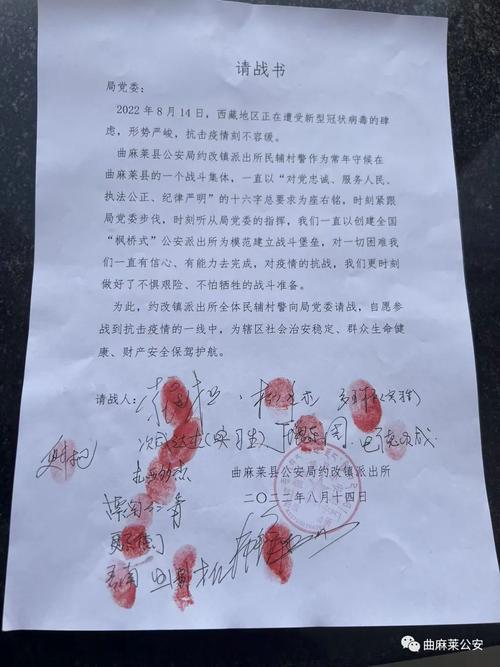 请战书
局党委：
2022年8月14日，西藏地区正在遭受新型冠状病毒的肆
虐，形势严峻，抗击疫情刻不容缓。
曲麻莱县公安局约改镇派出所民辅村警作为常年守候在
曲麻莱县的一个战斗集体，一直以“对党忠诚、服务人民、
执法公正、纪律严明”的十六字总要求为座右铭，时刻紧跟
局党委步伐，时刻听从局党委的指挥，我们一直以创建全国
“枫桥式”公安派出所为模范建立战斗堡垒，对一切困难我
们一直有信心、有能力去完成，对疫情的抗战，我们更时刻
做好了不惧艰险、不怕牺牲的战斗准备。
为此，约改镇派出所全体民辅村警向局党委请战，自愿参
战到抗击疫情的一线中，为辖区社会治安稳定、群众生命健
康、财产安全保驾护航。
请战人：
(实习生)
曲麻莱县公安局约改镇派出所
二〇二二年八月十四日
曲麻莱公安